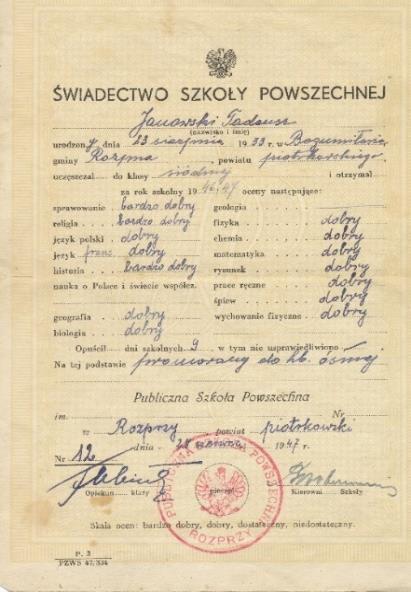 ŚWIADECTWO SZKOŁY POWSZECHNEJ
Janowski Tadeusz
(nazwisko i imię)
urodzony dnia 23 sierpnia 1933 r. w
gminy Rozprza, powiatu piotrkowskiego
uczęszczał do klasy siódmej i otrzymał
za rok szkolny 1946/47 oceny następujące:
sprawowanie bardzo dobry
religia bardzo dobry
język polski dobry
język franc. dobry
historia bardzo dobry
nauka o Polsce i świecie współcz.
geografia dobry
biologia dobry
geologia
fizyka dobry
chemia dobry
matematyka dobry
rysunek dobry
prace ręczne dobry
śpiew dobry
wychowanie fizyczne dobry
Opuścił dni szkolnych 9 w tym nie usprawiedliwiono
Na tej podstawie promowany do kl. ósmej
Publiczna Szkoła Powszechna
im. Nr
w Rozprzy powiat piotrkowski
dnia 28 czerwca 1947 r.
Nr 12
Opiekun klasy pieczęć Kierown. Szkoły
PUBLICZNA SZKOŁA POWSZECHNA
ROZPRZY
Skala ocen: bardzo dobry, dobry, dostateczny, niedostateczny.
P. 3
PZWS 47/334